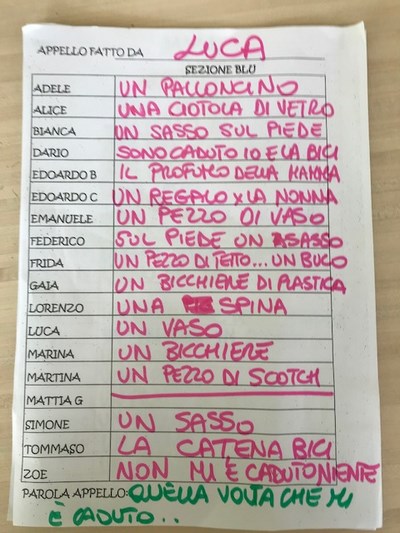 APPELLO FATTO DA LUCA
SEZIONE BLU
ADELE UN PALLONCINO
ALICE UNA CIOTOLA DI VETRO
BIANCA UN SASSO SUL PIEDE
DARIO SONO CADUTO IO E LA BICI
EDOARDO B IL PROFUMO DELLA MAMMA
EDOARDO C UN REGALO X LA NONNA
EMANUELE UN PEZZO DI VASO
FEDERICO SUL PIEDE UN SASSO
FRIDA UN PEZZO DI TETTO... UN BUCO
GAIA UN BICCHIERE DI PLASTICA
LORENZO UNA SPINA
LUCA UN VASO
MARINA UN BICCHIERE
MARTINA UN PEZZO DI SCOTCH
MATTIA G
SIMONE UN SASSO
TOMMASO LA CATENA BICI
ZOE NON MI È CADUTO NIENTE
PAROLA APPELLO: QUELLA VOLTA CHE MI
È CADUTO..